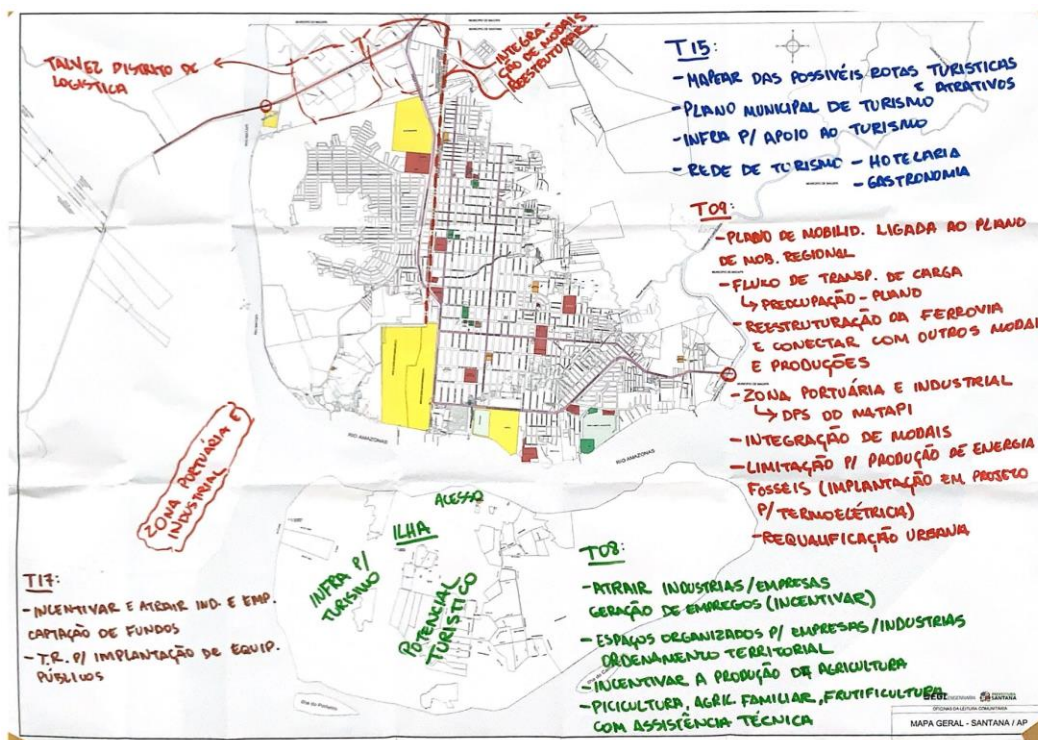 MUNICÍPIO DE MACAPÁ
MUNICÍPIO DE SANTANA
TALVEZ DISTRITO DE
LOGISTICA
INTEGRA
ÇÃO DE MODAIS
REESTRUTURAR
T15:
- MAPEAR DAS POSSIVÉIS ROTAS TURISTICAS
E ATRATIVOS
- PLANO MUNICIPAL DE TURISMO
- INFRA P/ APOIO AO TURISMO
- REDE DE TURISMO - HOTELARIA
- GASTRONOMIA
T09:
- PLANO DE MOBILID. LIGADA AO PLANO
DE MOB. REGIONAL
- FLUXO DE TRANSP. DE CARGA
↳ PREOCUPAÇÃO - PLANO
- REESTRUTURAÇÃO DA FERROVIA
E CONECTAR COM OUTROS MODAI
E PRODUÇÕES
- ZONA PORTUÁRIA E INDUSTRIAL
↳ DPS DO MATAPI
- INTEGRAÇÃO DE MODAIS
- LIMITAÇÃO P/ PRODUÇÃO DE ENERGIA
FOSSEIS (IMPLANTAÇÃO EM PROJETO
P/ TERMOELÉTRICA)
- REQUALIFICAÇÃO URBANA
RIO AMAZONAS
RIO AMAZONAS
ZONA PORTUÁRIA E
INDUSTRIAL
ACESSO
ILHA
INFRA P/
TURISMO
POTENCIAL
TURISTICO
T17:
- INCENTIVAR E ATRAIR IND. E EMP.
CAPTAÇÃO DE FUNDOS
- T.R. P/ IMPLANTAÇÃO DE EQUIP.
PÚBLICOS
T08:
- ATRAIR INDUSTRIAS/EMPRESAS
GERAÇÃO DE EMPREGOS (INCENTIVAR)
- ESPAÇOS ORGANIZADOS P/ EMPRESAS/INDUSTRIAS
ORDENAMENTO TERRITORIAL
- INCENTIVAR A PRODUÇÃO DA AGRICULTURA
- PICICULTURA, AGRIC. FAMILIAR, FRUTIFICULTURA
COM ASSISTÊNCIA TÉCNICA
PREFEITURA
SANTANA
OFICINAS DA LEITURA COMUNITÁRIA
MAPA GERAL - SANTANA / AP